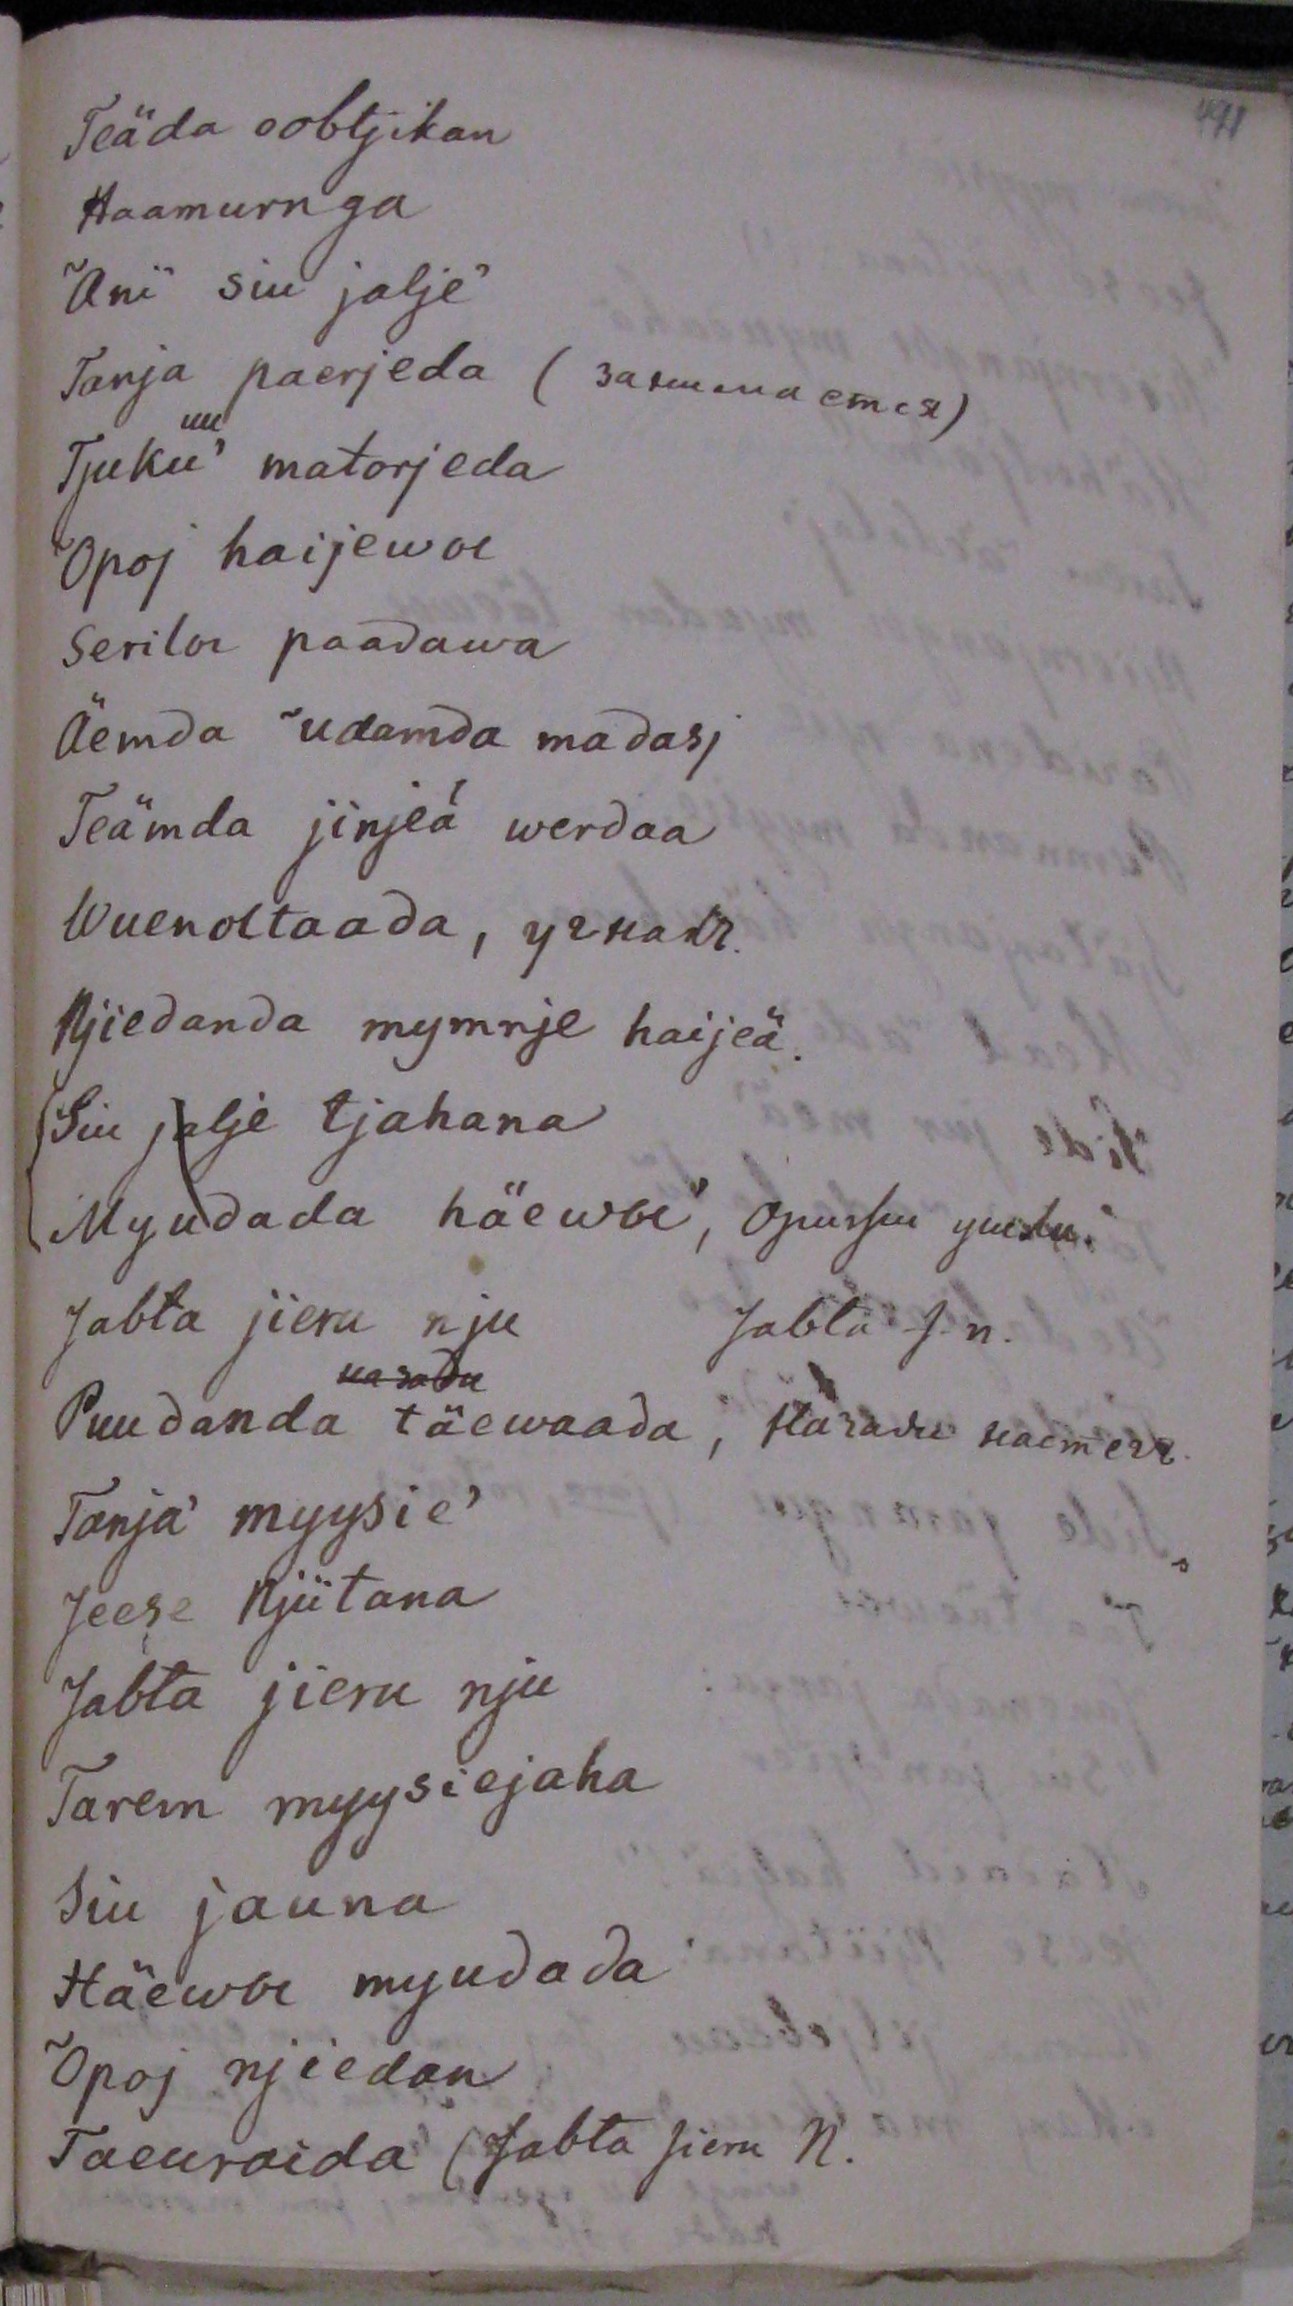 491
Teäda oobtjikan
Haamurnga
˜Ani siu jalje'
Tanja paerjeda (занимается)
Tjukuu' matorjeda
˜Opoj haijewoe
Seriloe paadawa
Äemda ˜udamda madasj
Teämda jinjeä' werdaa
Wuenoltaada, угналъ.
Njiedanda mymnje haijeä.
Siu jalje tjahana
Myudada häewoe', ушли.
Jabta jieru nju Jabta J. n.
назади
Puudanda täewaada, Назади настегъ.
Tanja' myysie'
Jeese Njiitana
Jabta jieru nju
Tarem myysiejaha
Siu jauna
Häewoe myudada
˜Opoj njiedan
Taeuraida (Jabta Jieru N.